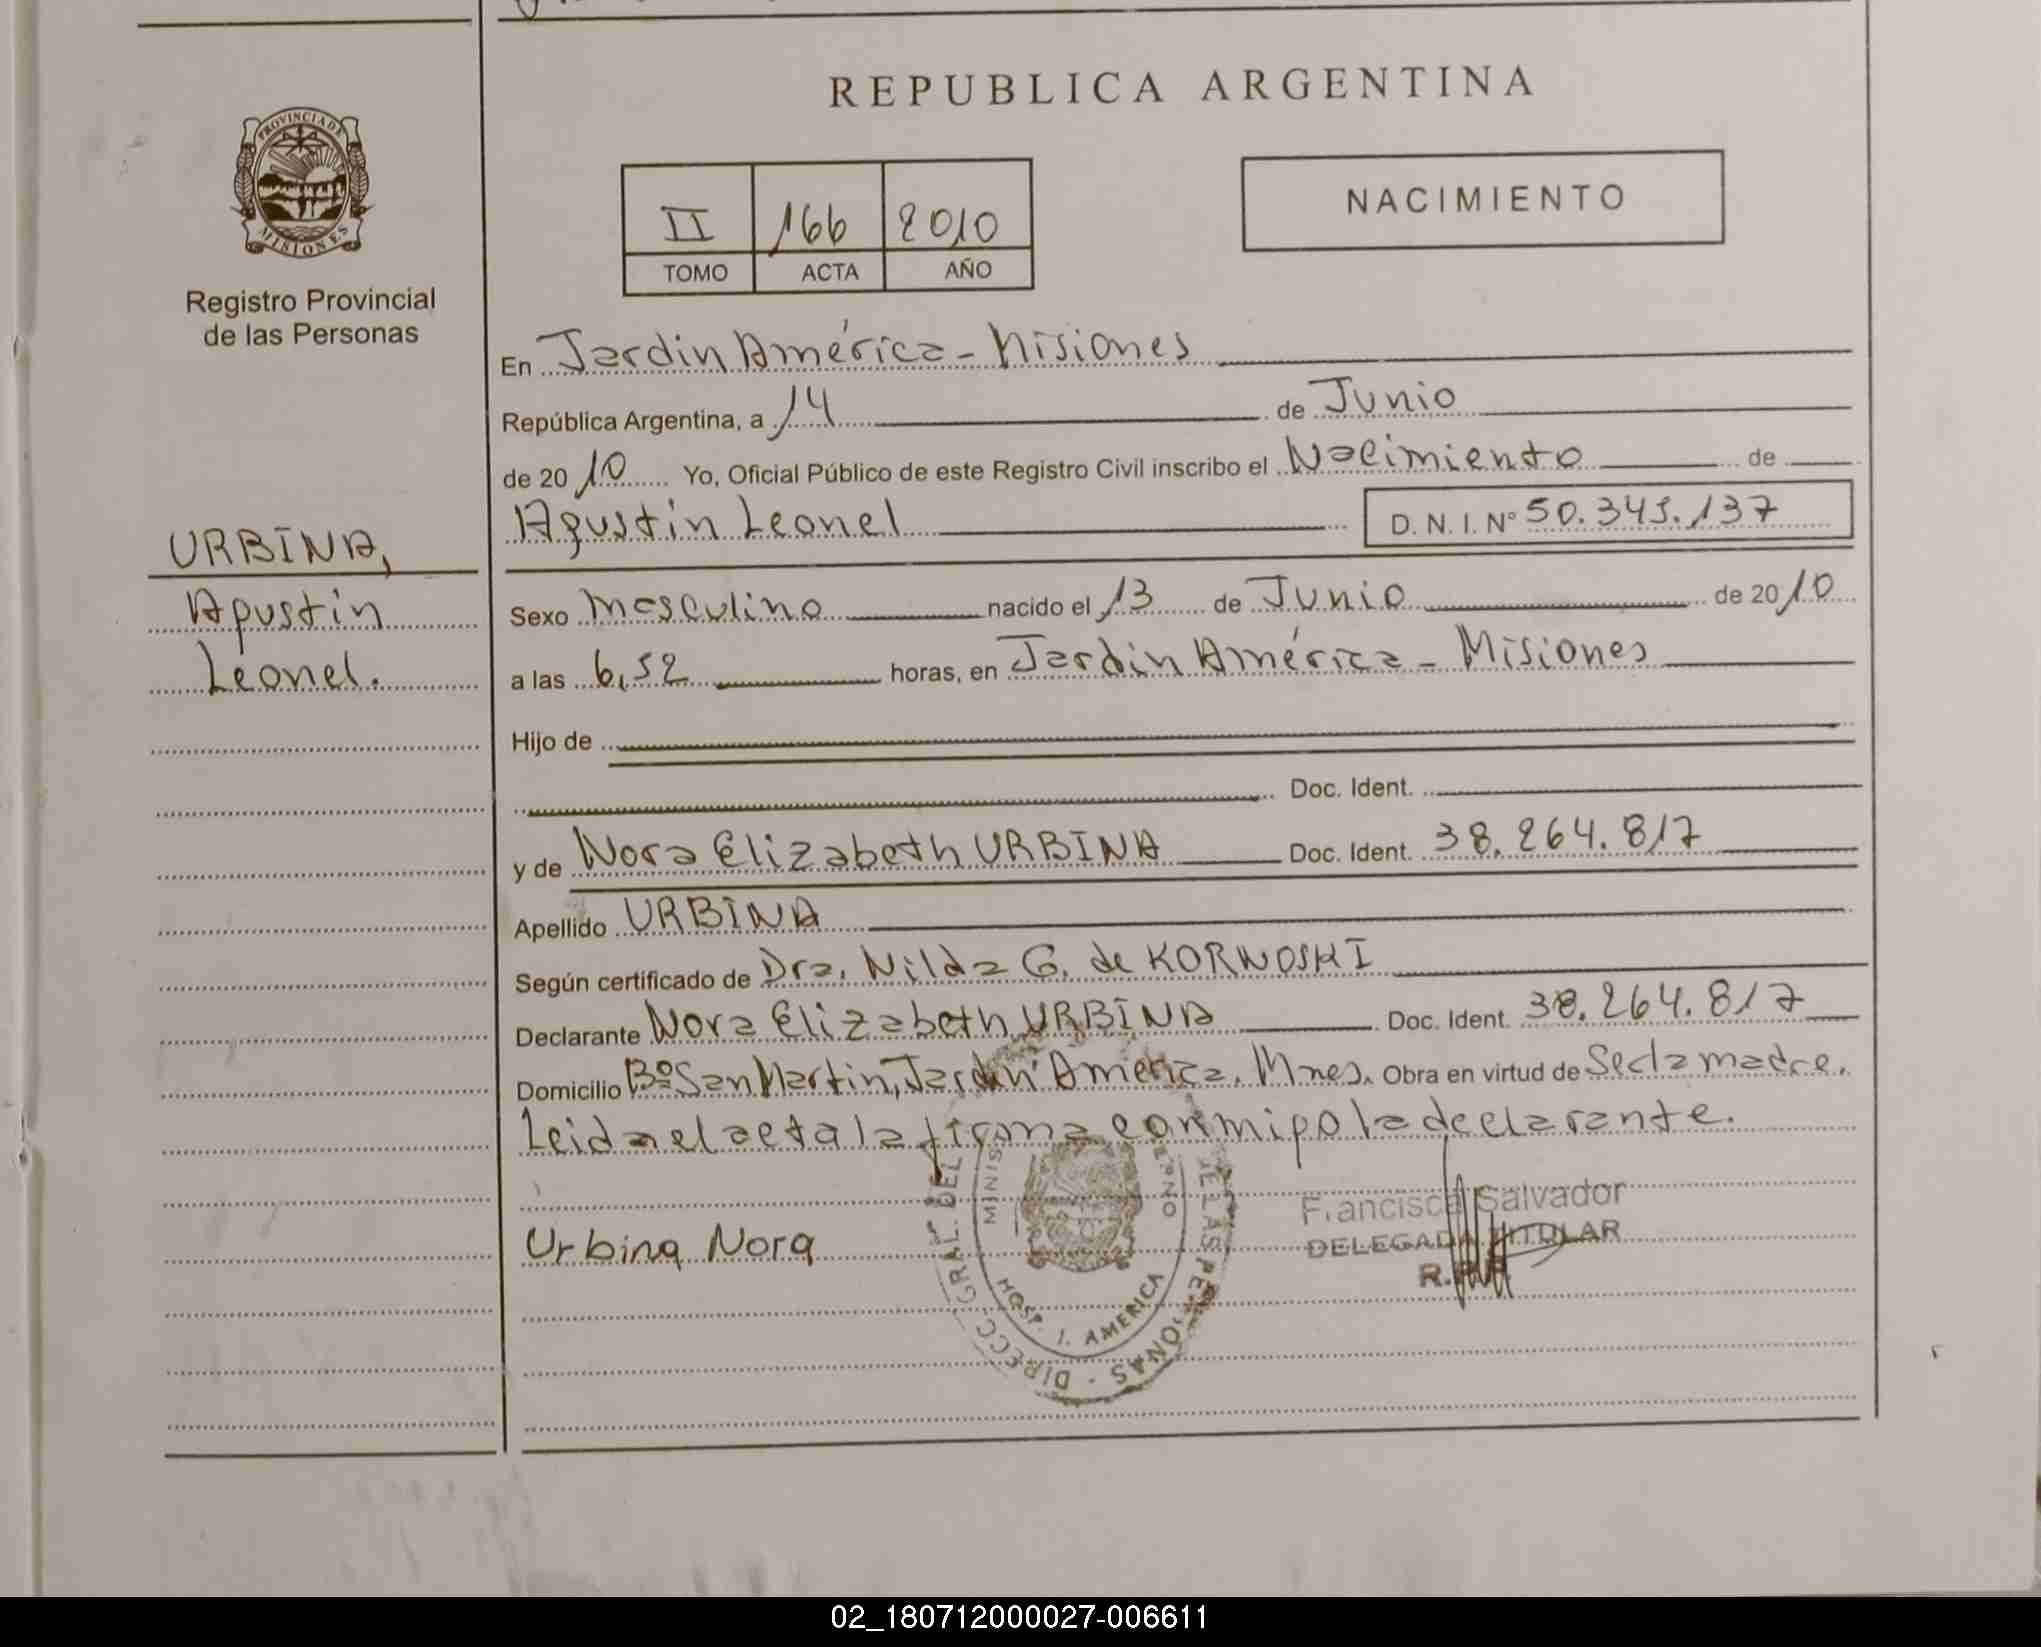 REPUBLICA ARGENTINA
PROVINCIA DE
MISIONES
Registro Provincial
de las Personas
II 166 2010
TOMO ACTA AÑO
NACIMIENTO
En Jardin América - Misiones
República Argentina, a 14 de Junio
de 2010 Yo, Oficial Público de este Registro Civil inscribo el Nacimiento de
Agustin Leonel D. N. I. N° 50.343.137
URBINA,
Agustin
Leonel.
Sexo masculino nacido el 13 de Junio de 2010
a las 6,52 horas, en Jardin América - Misiones
Hijo de
Doc. Ident.
y de Nora Elizabeth URBINA Doc. Ident. 38.264.817
Apellido URBINA
Según certificado de Dra. Nilda G. de KORNOSKI
Declarante Nora Elizabeth URBINA Doc. Ident. 38.264.817
Domicilio Bº San Martin, Jardin América, Mnes. Obra en virtud de Ser la madre.
Leida el acta la firma conmigo la declarante.
Urbina Nora
DIRECC. GRAL. DEL DE LAS PERSONAS
HOSP. J. AMERICA
Francisca Salvador
DELEGADA TITULAR
02_180712000027-006611